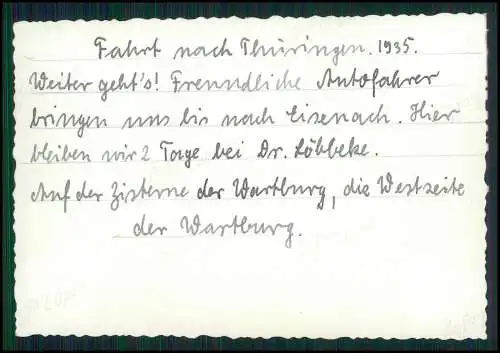 Fahrt nach Thüringen. 1935.
Weiter geht's! Freundliche Autofahrer
bringen uns bis nach Eisenach. Hier
bleiben wir 2 Tage bei Dr. Löbbeke.
Auf der Zisterne der Wartburg, die Westseite
der Wartburg.